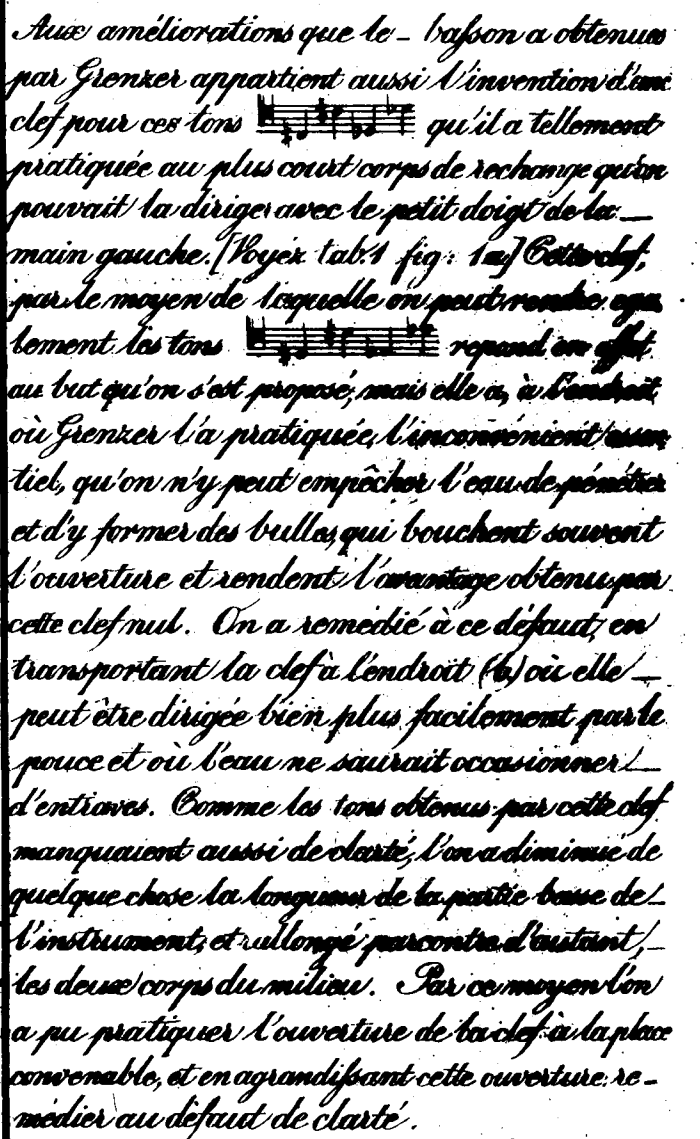 Aux améliorations que le _ basson a obtenues
par Grenzer appartient aussi l'invention d'une
clef pour ces tons qu'il a tellement
pratiquée au plus court corps de rechange qu'on
pouvait la diriger avec le petit doigt de la _
main gauche. [Voyez tab: 1 fig: 1 a] Cette clef,
par le moyen de laquelle on peut rendre ega_
lement les tons repond en effet
au but qu'on s'est proposé, mais elle a, à l'endroit
où Grenzer l'a pratiquée, l'inconvénient essen
tiel, qu'on n'y peut empêcher l'eau de pénétrer
et d'y former des bulles, qui bouchent souvent
l'ouverture et rendent l'avantage obtenu par
cette clef nul. On a remédié à ce défaut, en
transportant la clef à l'endroit (b) où elle _
peut être dirigée bien plus facilement par le
pouce et où l'eau ne saurait occasionner _
d'entraves. Comme les tons obtenus par cette clef
manquaient aussi de clarté, l'on a diminué de
quelque chose la longueur de la partie basse de _
l'instrument, et rallongé parcontre d'autant, _
les deux corps du milieu. Par ce moyen l'on
a pu pratiquer l'ouverture de la clef à la place
convenable, et en agrandissant cette ouverture re_
médier au défaut de clarté.